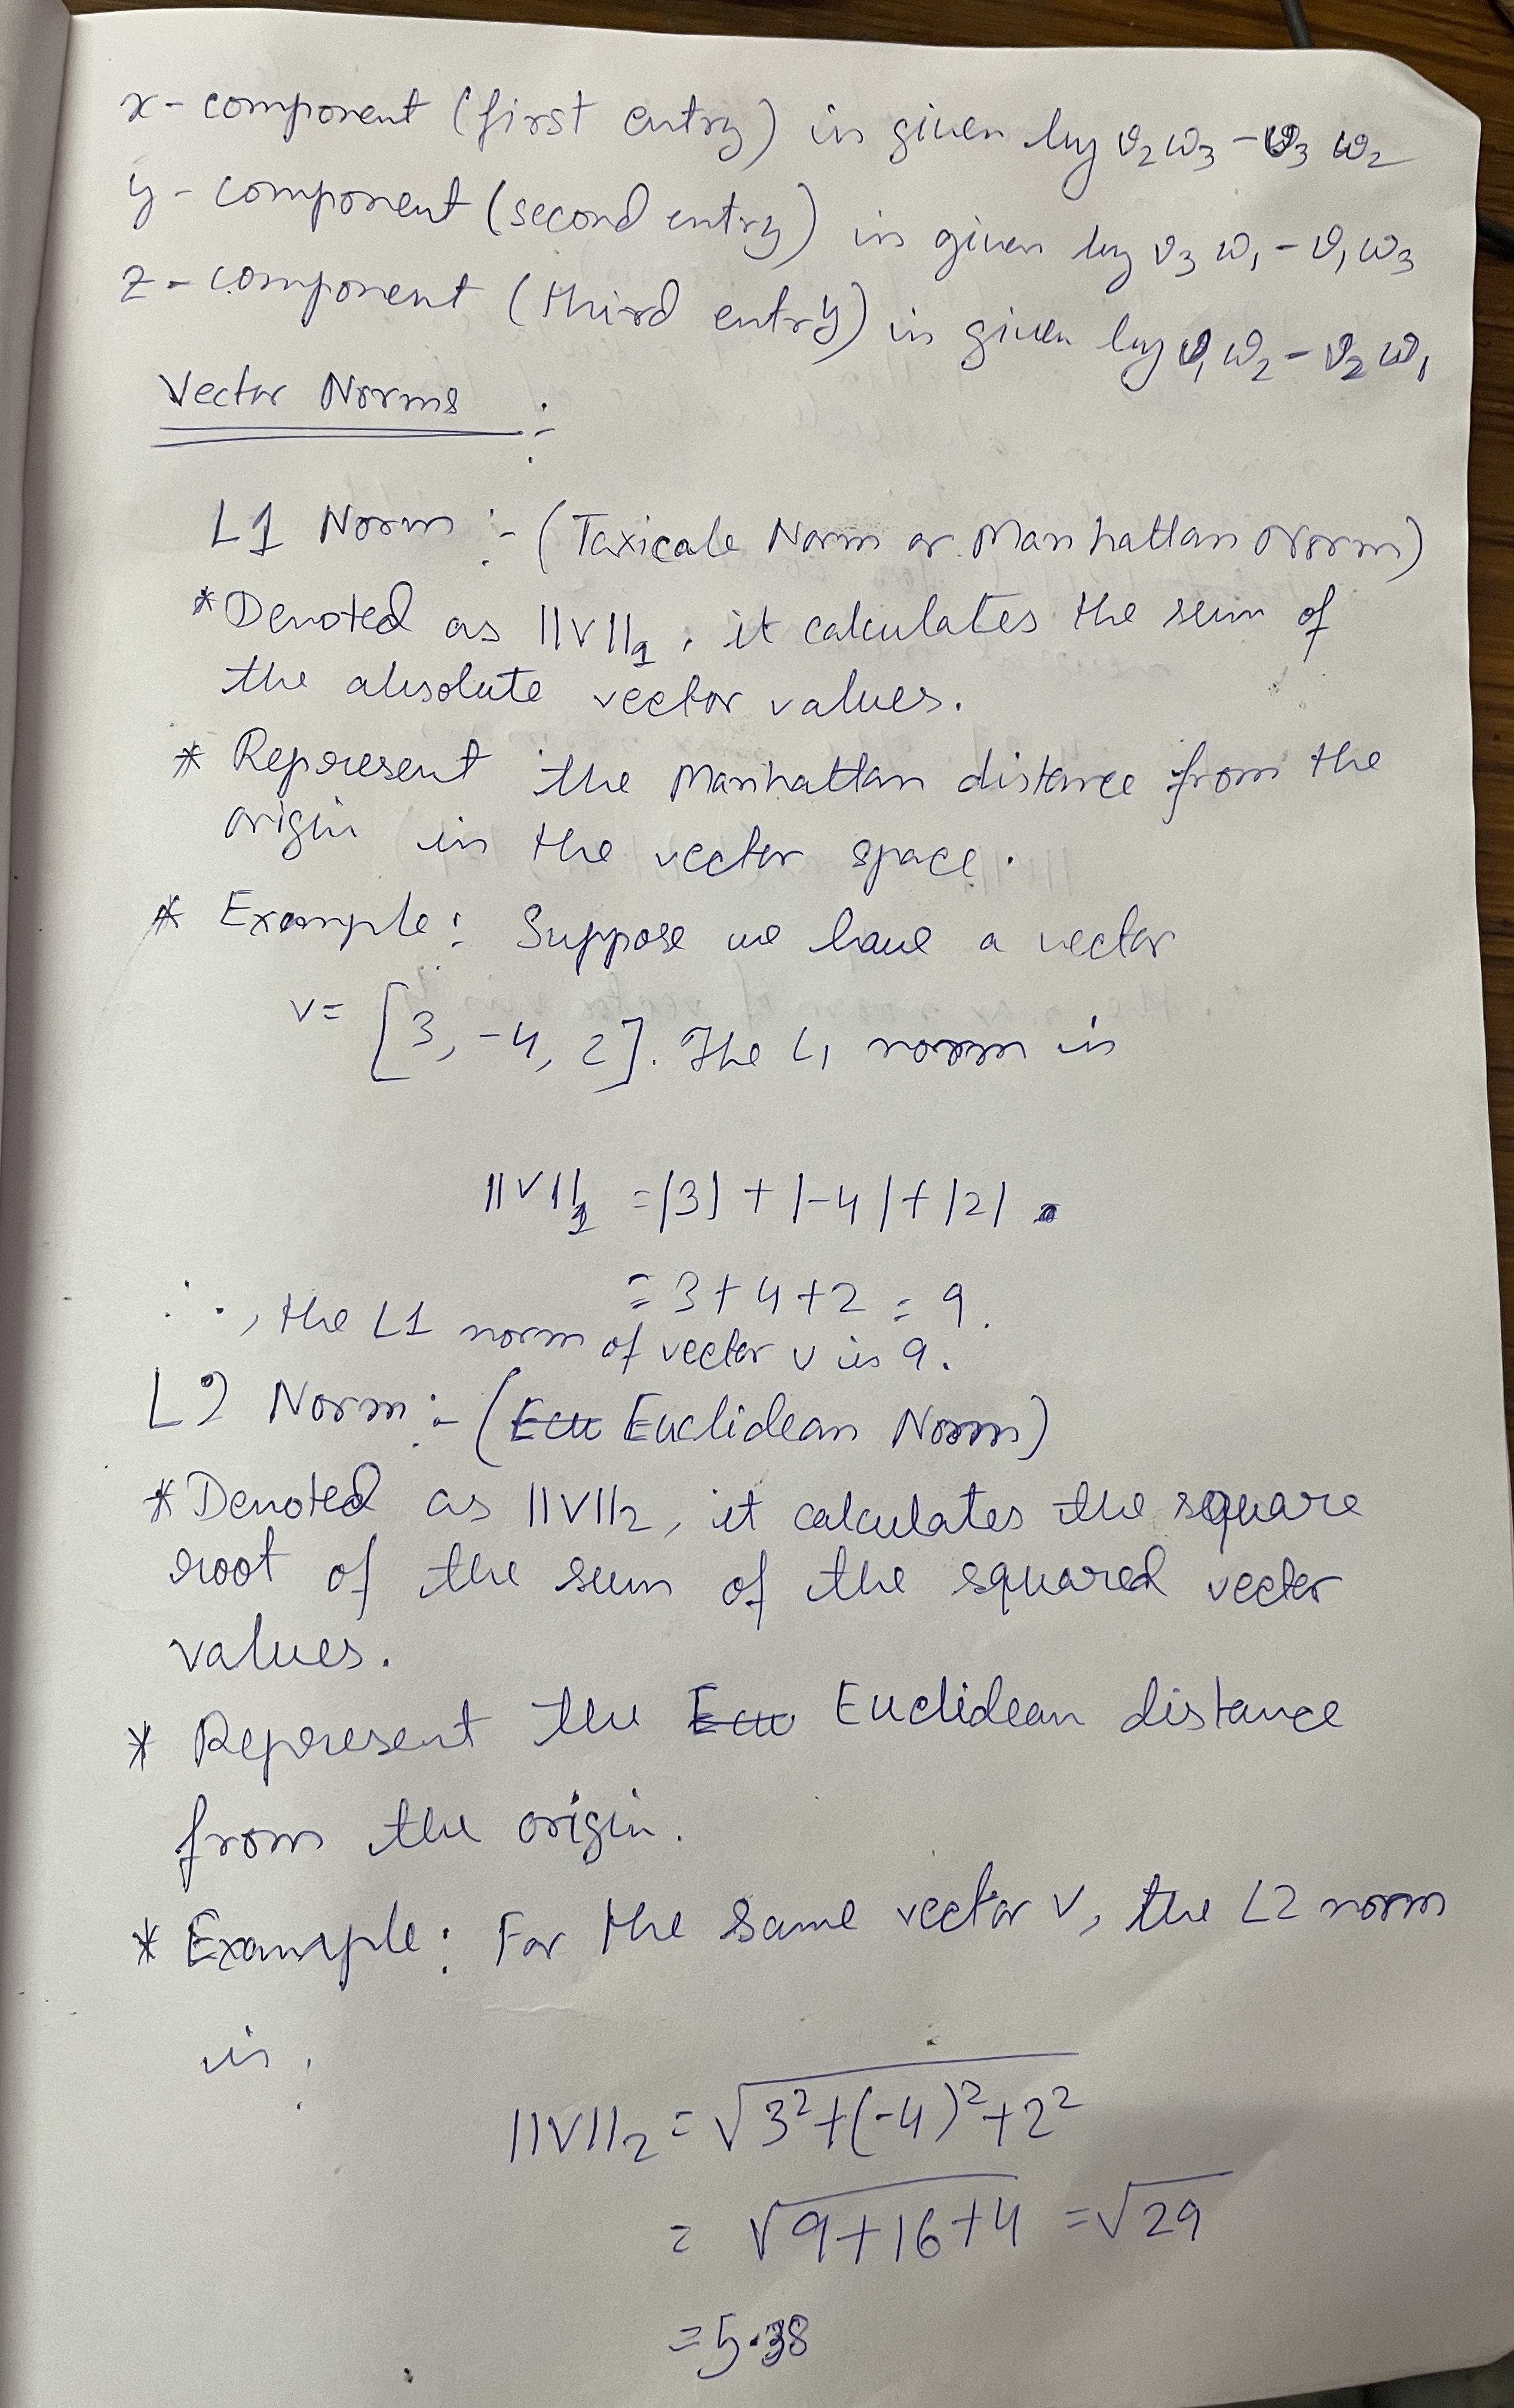 x-component (first entry) is given by v₂w₃ - v₃ w₂
y-component (second entry) is given by v₃ w₁ - v₁w₃
z-component (third entry) is given by v₁w₂ - v₂w₁
Vector Norms :-
L1 Norm :- (Taxicab Norm or Manhattan Norm)
*Denoted as ||V||₁, it calculates the sum of
the absolute vector values.
* Represent the Manhattan distance from the
origin in the vector space.
* Example: Suppose we have a vector
v= [3, -4, 2]. The L₁ norm is
||V||₁ = |3| + |-4| + |2|
= 3+4+2 = 9.
∴, the L1 norm of vector v is 9.
L2 Norm :- (Ecu Euclidean Norm)
*Denoted as ||V||₂, it calculates the square
root of the sum of the squared vector
values.
* Represent the Ecu Euclidean distance
from the origin.
* Example: For the same vector V, the L2 norm
is :
||V||₂ = √3²+(-4)²+2²
= √9+16+4 = √29
= 5.38